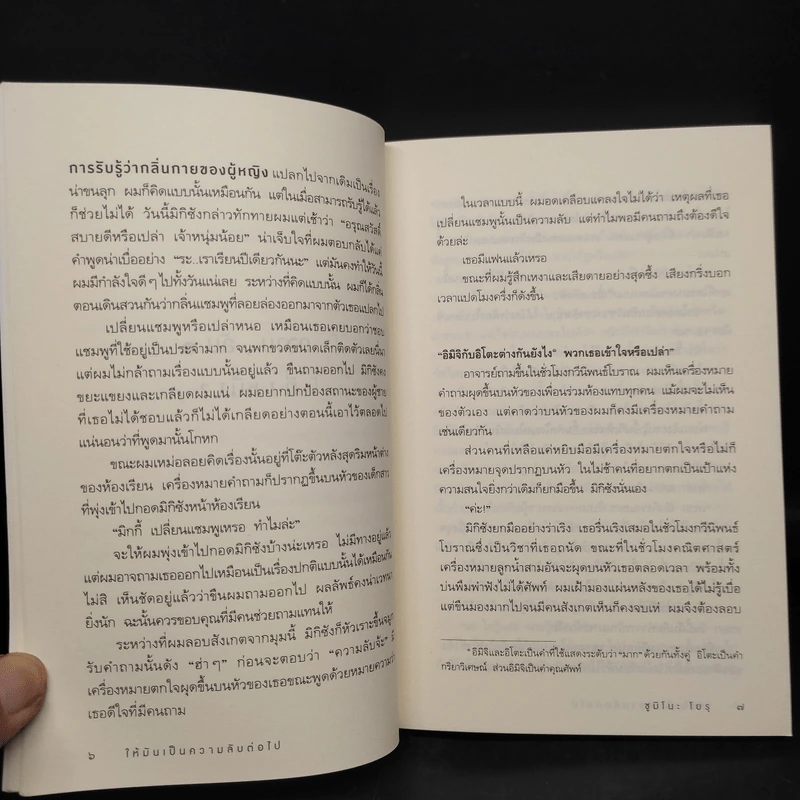 การรับรู้ว่ากลิ่นกายของผู้หญิง แปลกไปจากเดิมเป็นเรื่อง
น่าขนลุก ผมก็คิดแบบนั้นเหมือนกัน แต่ในเมื่อสามารถรับรู้ได้แล้ว
ก็ช่วยไม่ได้ วันนี้มิกิซังกล่าวทักทายผมแต่เช้าว่า “อรุณสวัสดิ์
สบายดีหรือเปล่า เจ้าหนุ่มน้อย” น่าเจ็บใจที่ผมตอบกลับได้แค่
คำพูดน่าเบื่ออย่าง “ระ..เราเรียนปีเดียวกันนะ” แต่มันคงทำให้วันนี้
ผมมีกำลังใจดีๆ ไปทั้งวันแน่เลย ระหว่างที่คิดแบบนั้น ผมก็ได้กลิ่น
ตอนเดินสวนกันว่ากลิ่นแชมพูที่ลอยล่องออกมาจากตัวเธอแปลกไป
เปลี่ยนแชมพูหรือเปล่าหนอ เหมือนเธอเคยบอกว่าชอบ
แชมพูที่ใช้อยู่เป็นประจำมาก จนพกขวดขนาดเล็กติดตัวเลยนี่นา
แต่ผมไม่กล้าถามเรื่องแบบนั้นอยู่แล้ว ขืนถามออกไป มิกิซังคง
ขยะแขยงและเกลียดผมแน่ ผมอยากปกป้องสถานะของผู้ชาย
ที่เธอไม่ได้ชอบแล้วก็ไม่ได้เกลียดอย่างตอนนี้เอาไว้ตลอดไป
แน่นอนว่าที่พูดมานั้นโกหก
ขณะผมเหม่อลอยคิดเรื่องนั้นอยู่ที่โต๊ะตัวหลังสุดริมหน้าต่าง
ของห้องเรียน เครื่องหมายคำถามก็ปรากฏขึ้นบนหัวของเด็กสาว
ที่พุ่งเข้าไปกอดมิกิซังหน้าห้องเรียน
“มิกกี้ เปลี่ยนแชมพูเหรอ ทำไมล่ะ”
จะให้ผมพุ่งเข้าไปกอดมิกิซังบ้างน่ะเหรอ ไม่มีทางอยู่แล้ว
แต่ผมอาจถามเธอออกไปเหมือนเป็นเรื่องปกติแบบนั้นได้เหมือนกัน
ไม่สิ เห็นชัดอยู่แล้วว่าขืนผมถามออกไป ผลลัพธ์คงน่าเวทนา
ยิ่งนัก ฉะนั้นควรขอบคุณที่มีคนช่วยถามแทนให้
ระหว่างที่ผมลอบสังเกตจากมุมนี้ มิกิซังก็หัวเราะขึ้น
รับคำถามนั้นดัง “ฮ่าๆ” ก่อนจะตอบว่า “ความลับจ้ะ”
เครื่องหมายตกใจผุดขึ้นบนหัวของเธอขณะพูดด้วยหมายความว่า
เธอดีใจที่มีคนถาม
๖ ให้มันเป็นความลับต่อไป
ในเวลาแบบนี้ ผมอดเคลือบแคลงใจไม่ได้ว่า เหตุผลที่เธอ
เปลี่ยนแชมพูนั้นเป็นความลับ แต่ทำไมพอมีคนถามถึงต้องดีใจ
ด้วยล่ะ
เธอมีแฟนแล้วเหรอ
ขณะที่ผมรู้สึกเหงาและเสียดายอย่างสุดซึ้ง เสียงกริ่งบอก
เวลาแปดโมงครึ่งก็ดังขึ้น
“อิมิจิกับอิโตะต่างกันยังไง* พวกเธอเข้าใจหรือเปล่า”
อาจารย์ถามขึ้นในชั่วโมงกวีนิพนธ์โบราณ ผมเห็นเครื่องหมาย
คำถามผุดขึ้นบนหัวของเพื่อนร่วมห้องแทบทุกคน แม้ผมจะไม่เห็น
ของตัวเอง แต่คาดว่าบนหัวของผมก็คงมีเครื่องหมายคำถาม
เช่นเดียวกัน
ส่วนคนที่เหลือแค่หยิบมือมีเครื่องหมายตกใจหรือไม่ก็
เครื่องหมายจุดปรากฏบนหัว ในไม่ช้าคนที่อยากตกเป็นเป้าแห่ง
ความสนใจยิ่งกว่าเดิมก็ยกมือขึ้น มิกิซังนั่นเอง
“ค่ะ!”
มิกิซังยกมืออย่างร่าเริง เธอรื่นเริงเสมอในชั่วโมงกวีนิพนธ์
โบราณซึ่งเป็นวิชาที่เธอถนัด ขณะที่ในชั่วโมงคณิตศาสตร์
เครื่องหมายลูกน้ำสามอันจะผุดบนหัวเธอตลอดเวลา พร้อมทั้ง
บ่นพึมพำฟังไม่ได้ศัพท์ ผมเฝ้ามองแผ่นหลังของเธอได้ไม่รู้เบื่อ
แต่ขืนมองมากไปจนมีคนสังเกตเห็นก็คงจบเห่ ผมจึงต้องลอบ
* อิมิจิและอิโตะเป็นคำที่ใช้แสดงระดับว่า “มาก” ด้วยกันทั้งคู่ อิโตะเป็นคำ
กริยาวิเศษณ์ ส่วนอิมิจิเป็นคำคุณศัพท์
ซุมิโนะ โยรุ ๗